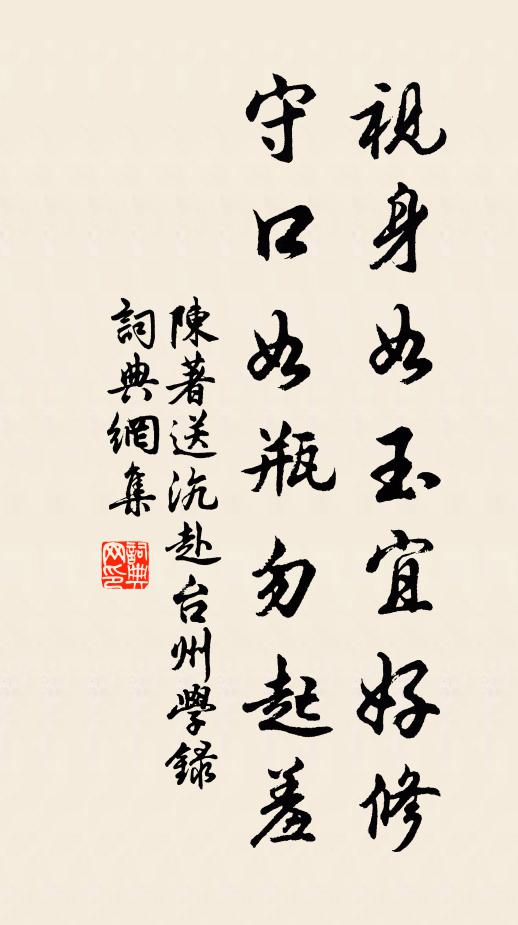 視身如玉宜好修
守口如瓶勿起羞
陳著送沇赴台州學録
詞典網集
詞典
网印